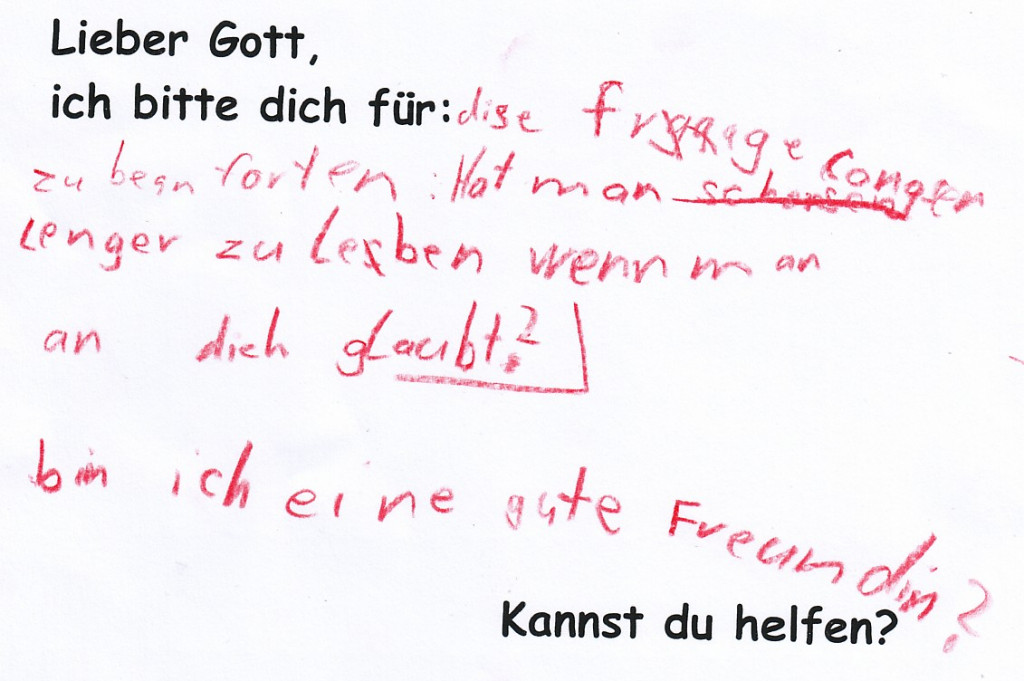 Lieber Gott,
ich bitte dich für: dise frage
zu beanforten : Hat man
lenger zu leben wenn man
an dich glaubt?
bin ich eine gute Freundin?
Kannst du helfen?